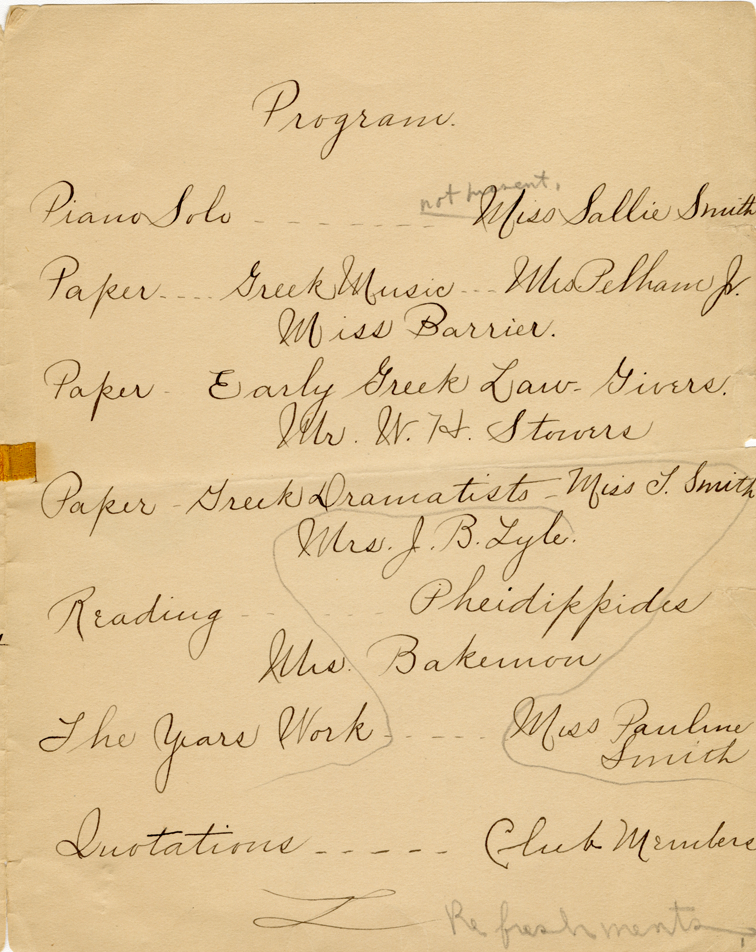 Program.
not present,
Piano Solo - - - - - - - Miss Sallie Smith
Paper - - - Greek Music - - - Mrs Pelham Jr.
Miss Barrier.
Paper - Early Greek Law-Givers.
Mr. W. H. Stowers
Paper - Greek Dramatists - Miss T. Smith
Mrs. J. B. Lyle.
Reading - - - - Pheidippides
Mrs. Bakemon
The Years Work - - - - - Miss Pauline
Smith
Quotations - - - - - Club Members
Refreshments